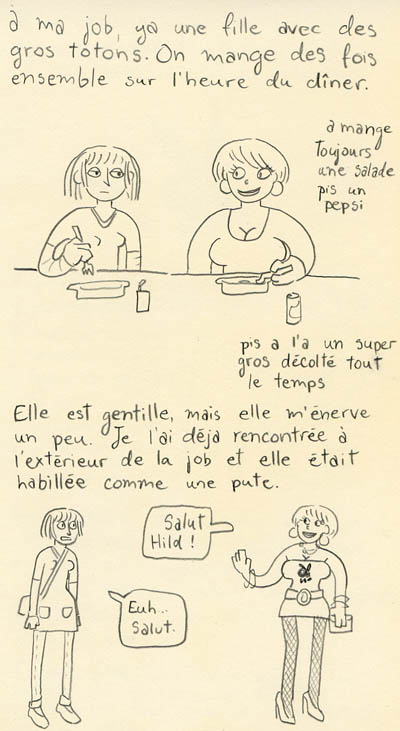 à ma job, ya une fille avec des
gros totons. On mange des fois
ensemble sur l'heure du dîner.
a mange
Toujours
une salade
pis un
pepsi
pis a l'a un super
gros décolté tout
le temps
Elle est gentille, mais elle m'énerve
un peu. Je l'ai déjà rencontrée à
l'extérieur de la job et elle était
habillée comme une pute.
Salut
Hild !
Euh..
Salut.